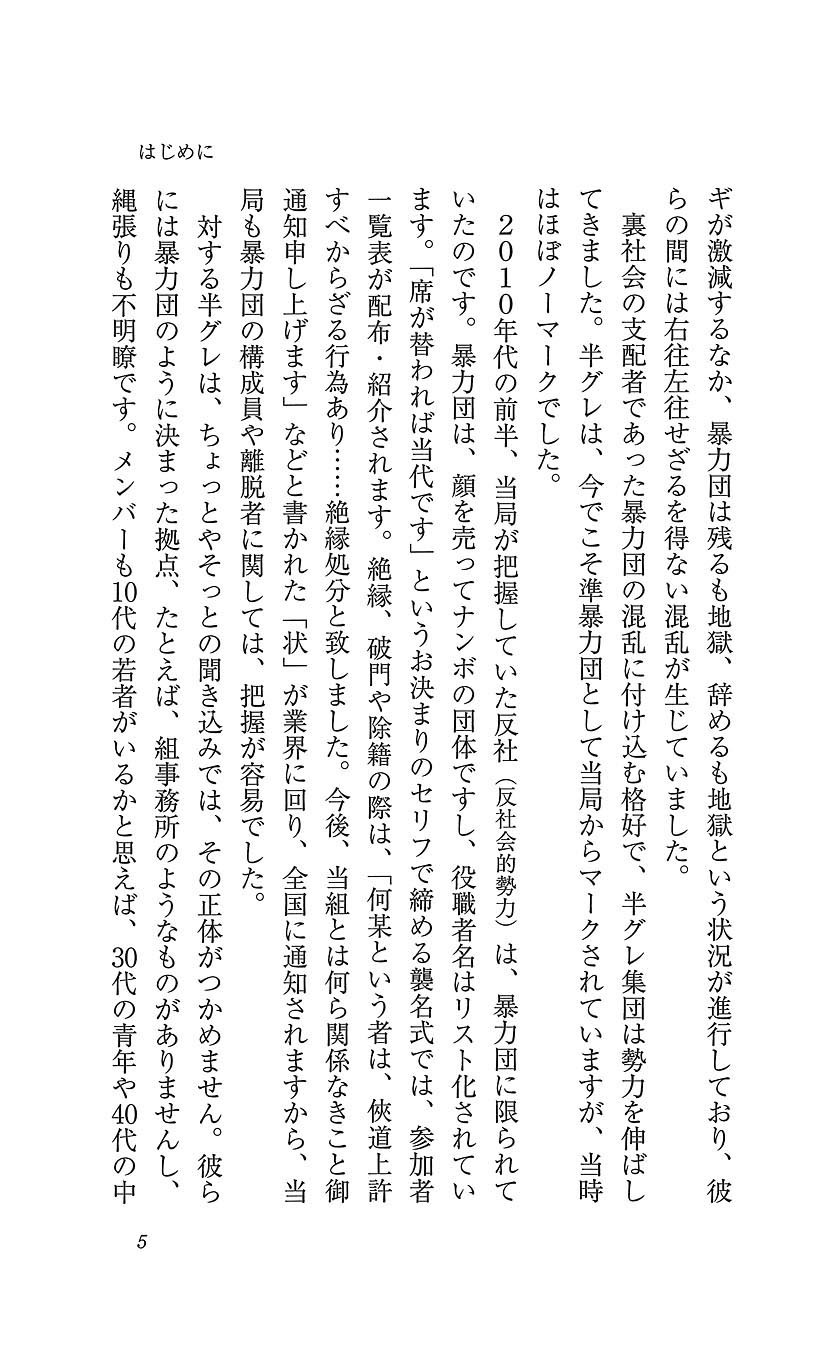 はじめに
ギが激減するなか、暴力団は残るも地獄、辞めるも地獄という状況が進行しており、彼
らの間には右往左往せざるを得ない混乱が生じていました。
裏社会の支配者であった暴力団の混乱に付け込む格好で、半グレ集団は勢力を伸ばし
てきました。半グレは、今でこそ準暴力団として当局からマークされていますが、当時
はほぼノーマークでした。
2010年代の前半、当局が把握していた反社（反社会的勢力）は、暴力団に限られて
いたのです。暴力団は、顔を売ってナンボの団体ですし、役職者名はリスト化されてい
ます。「席が替われば当代です」というお決まりのセリフで締める襲名式では、参加者
一覧表が配布・紹介されます。絶縁、破門や除籍の際は、「何某という者は、俠道上許
すべからざる行為あり……絶縁処分と致しました。今後、当組とは何ら関係なきこと御
通知申し上げます」などと書かれた「状」が業界に回り、全国に通知されますから、当
局も暴力団の構成員や離脱者に関しては、把握が容易でした。
対する半グレは、ちょっとやそっとの聞き込みでは、その正体がつかめません。彼ら
には暴力団のように決まった拠点、たとえば、組事務所のようなものがありませんし、
縄張りも不明瞭です。メンバーも10代の若者がいるかと思えば、30代の青年や40代の中
5